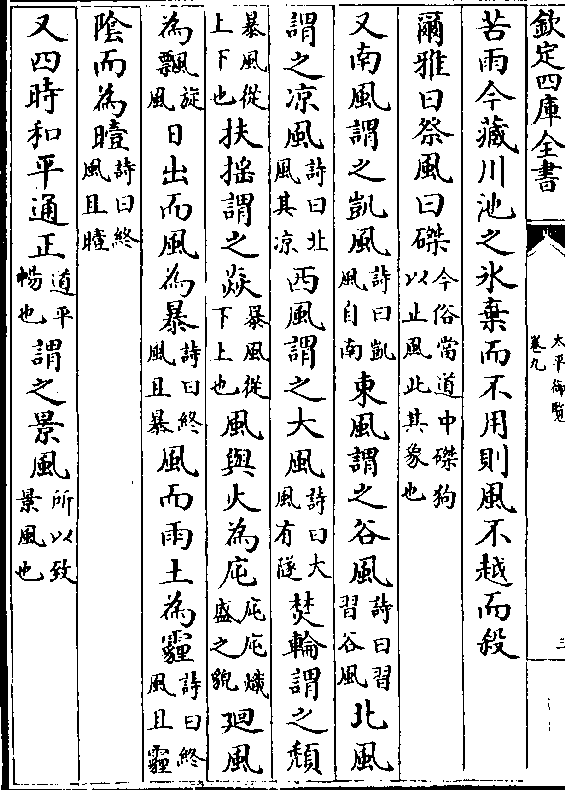 欽定四庫全書
太平御覧
卷九
三
苦雨今藏川池之氷棄而不用則風不越而殺
爾雅曰祭風曰磔今俗當道中磔狗以止風此其象也
又南風謂之凱風詩曰凱風自南東風謂之谷風詩曰習習谷風北風
謂之凉風詩曰北風其凉西風謂之大風詩曰大風有隧焚輪謂之頽
暴風從上下也扶摇謂之猋暴風從下上也風與火為庉庉庉熾盛之貌廻風
為飄旋風日出而風為暴詩曰終風且暴風而雨土為霾詩曰終風且霾
陰而為曀詩曰終風且曀
又四時和平通正道平暢也謂之景風所以致景風也